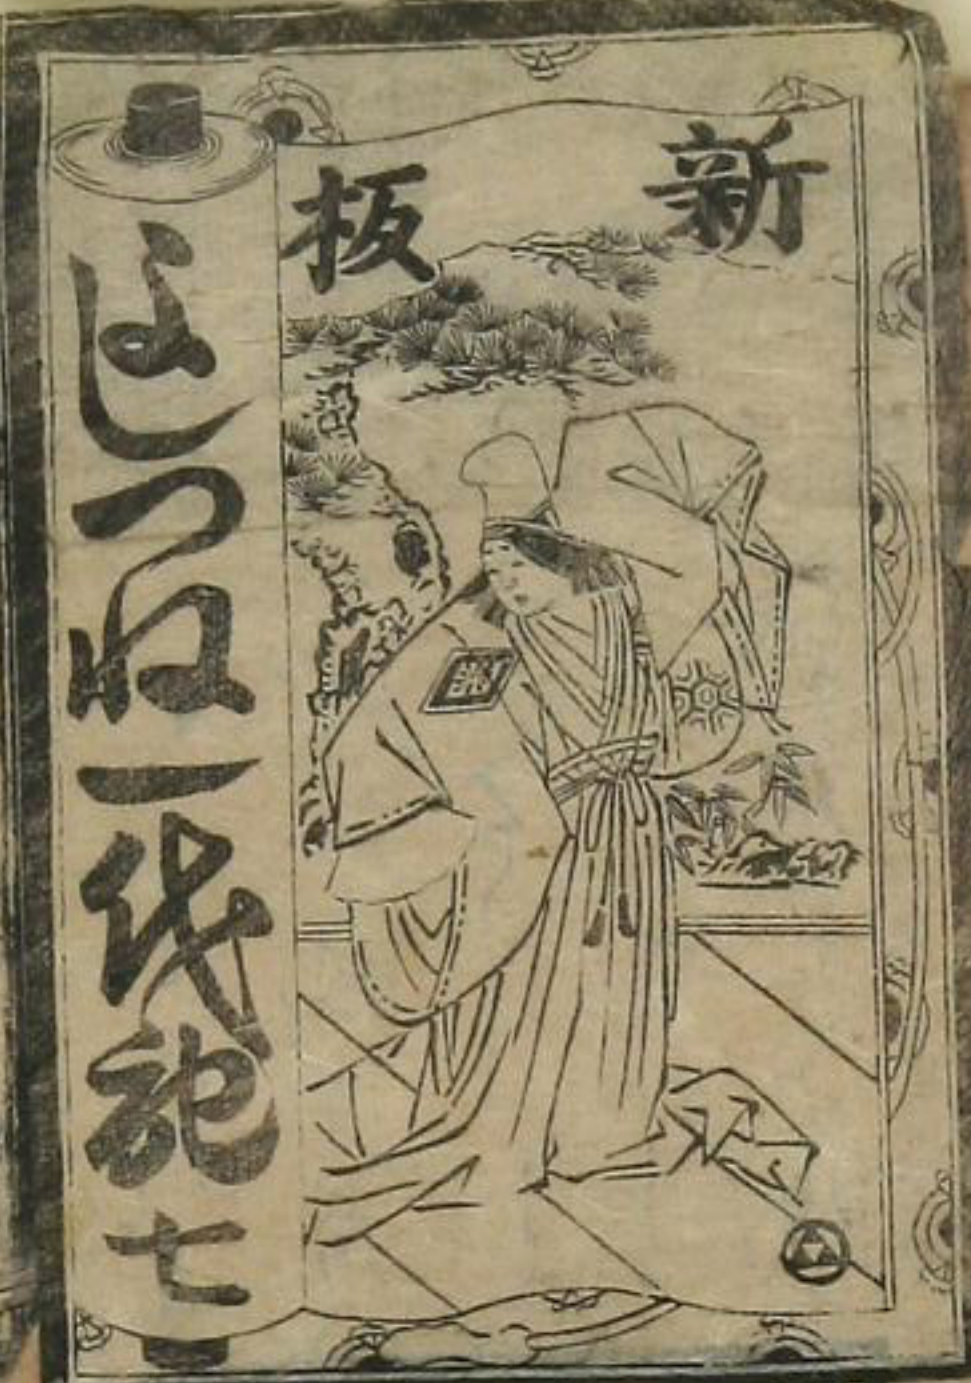 新板
よしつね一代記七